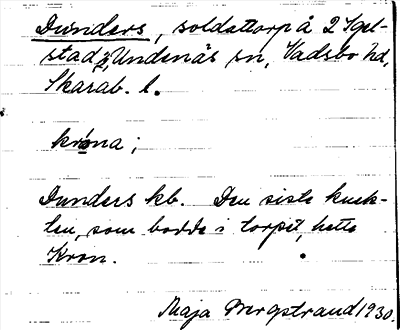 Dunders, soldattorp å 2 Igel-
stad, Undenäs sn, Vadsbo hd,
Skarab. l.
krona;
Dunders kb. Den siste knek-
ten, som bodde i torpet, hette
Kron.
Maja Bergstrand 1930.